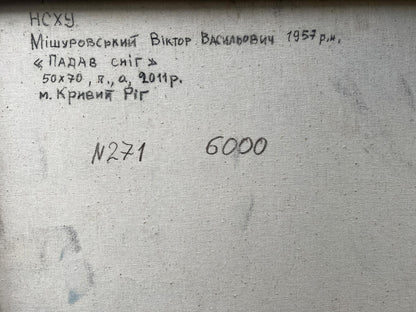 НСХУ
Мішуровський Віктор Васильович 1957 р.н.
« Падав сніг »
50х70, п., а, 2011р.
м. Кривий Ріг
N271 6000